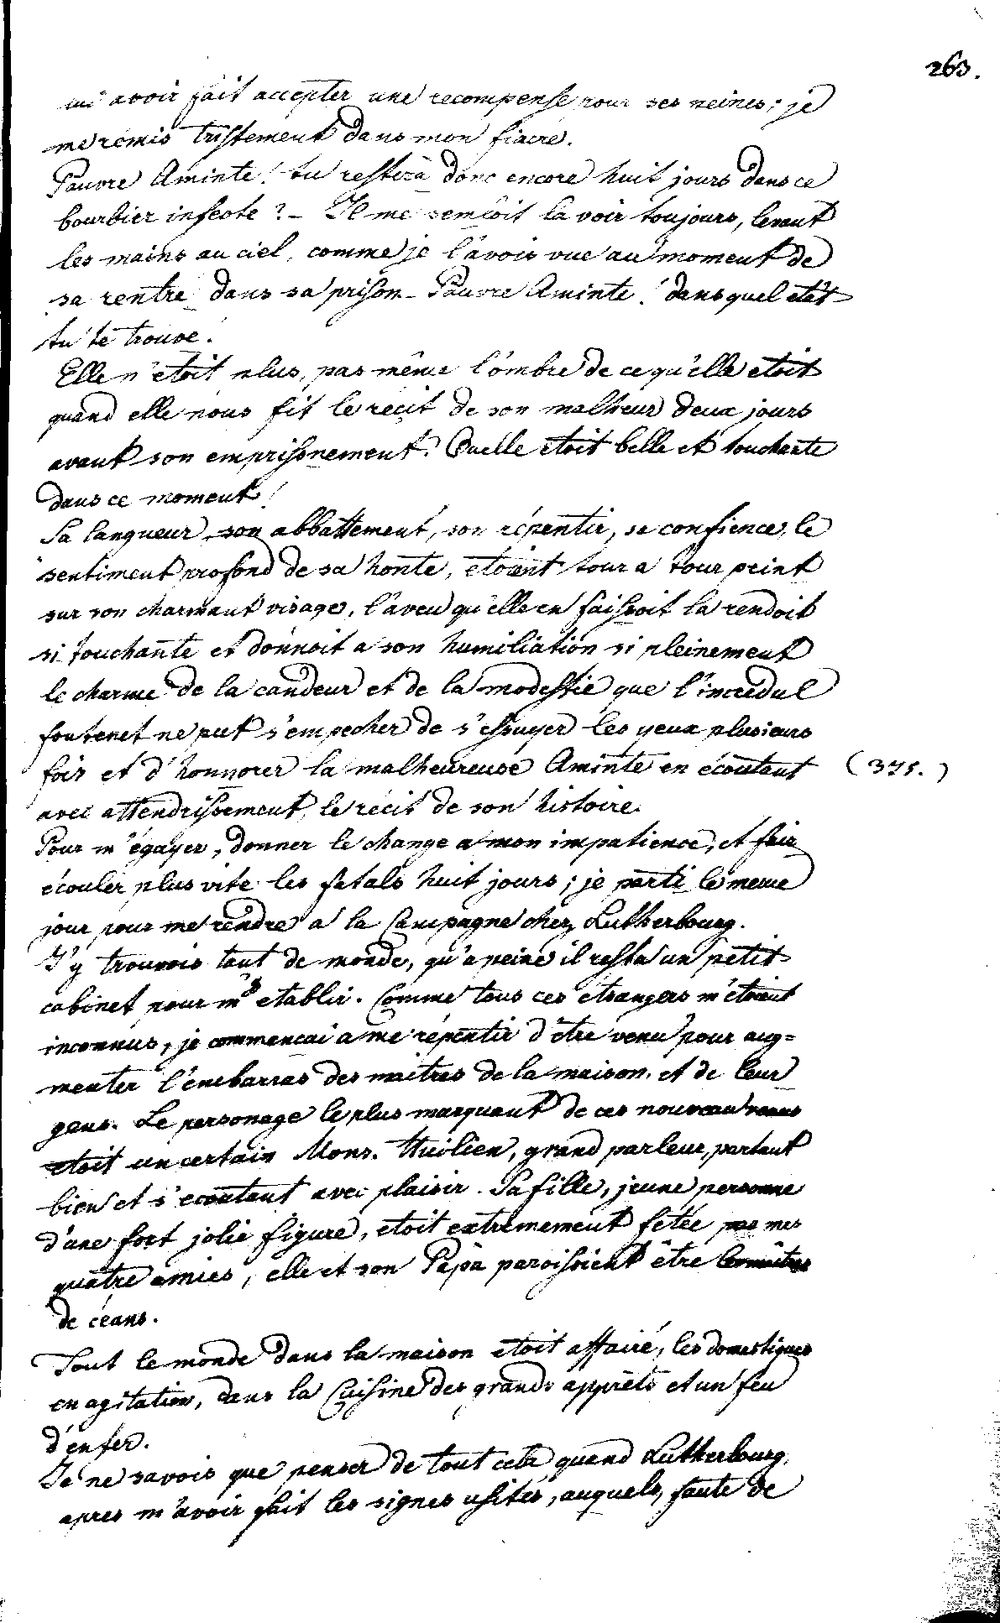 263.
lui avoir fait accepter une recompense pour ses peines; je
me remis tristement dans mon fiacre.
Pauvre Aminte! tu restera donc encore huit jours dans ce
bourbier infecte? - Il me sembloit la voir toujours, levant
les mains au ciel, comme je l'avois vue au moment de
sa rentré dans sa prison - Pauvre Aminte! dans quel etât
tu te trouve!
Elle n'etoit plus, pas même l'ombre de ce qu'elle etoit
quand elle nous fit le récit de son malheur deux jours
avant son emprisonement. Quelle etoit belle et touchante
dans ce moment!
Sa langueur, son abbattement, son répentir, sa confience, le
sentiment profond de sa honte, étoient tour a tour peint
sur son charmant visage, l'aveu qu'elle en faisoit la rendoit
si touchante et donnoit a son humiliation si pleinement
le charme de la candeur et de la modestie que l'incredul
fontenet ne put s'empecher de s'essuyer les yeux plusieurs
fois et d'honnorer la malheureuse Aminte en écoutant (375.)
avec attendrissement, le récit de son histoire.
Pour m'égayer, donner le change a mon impatience, et fair
écouler plus vite les fatals huit jours; je parti le meme
jour pour me rendre a la Campagne chez Lutherbourg.
J'y trouvois tant de monde, qu'a peine il resta un petit
cabinet pour m'y etablir. Comme tous ces étrangers m'étoient
inconnus, je commencai a me répentir d'être venu pour aug=
menter l'embarras des maitres de la maison et de leur
gens. Le personage le plus marquant de ces nouveau venus
etoit un certain Monr. Huilien, grand parleur, parlant
bien et s'ecoutant avec plaisir. Sa fille, jeune personne
d'une fort jolie figure, etoit extremement fétée par mes
quatre amies, elle et son Papa paroissoient être les maîtres
de céans.
Tout le monde dans la maison etoit affairé, les domestiques
en agitation, dans la Cuisine des grands apprêts et un feu
d'enfer.
Je ne savois que penser de tout cela quand Lutherbourg,
apres m'avoir fait les signes usités, auquels, faute de